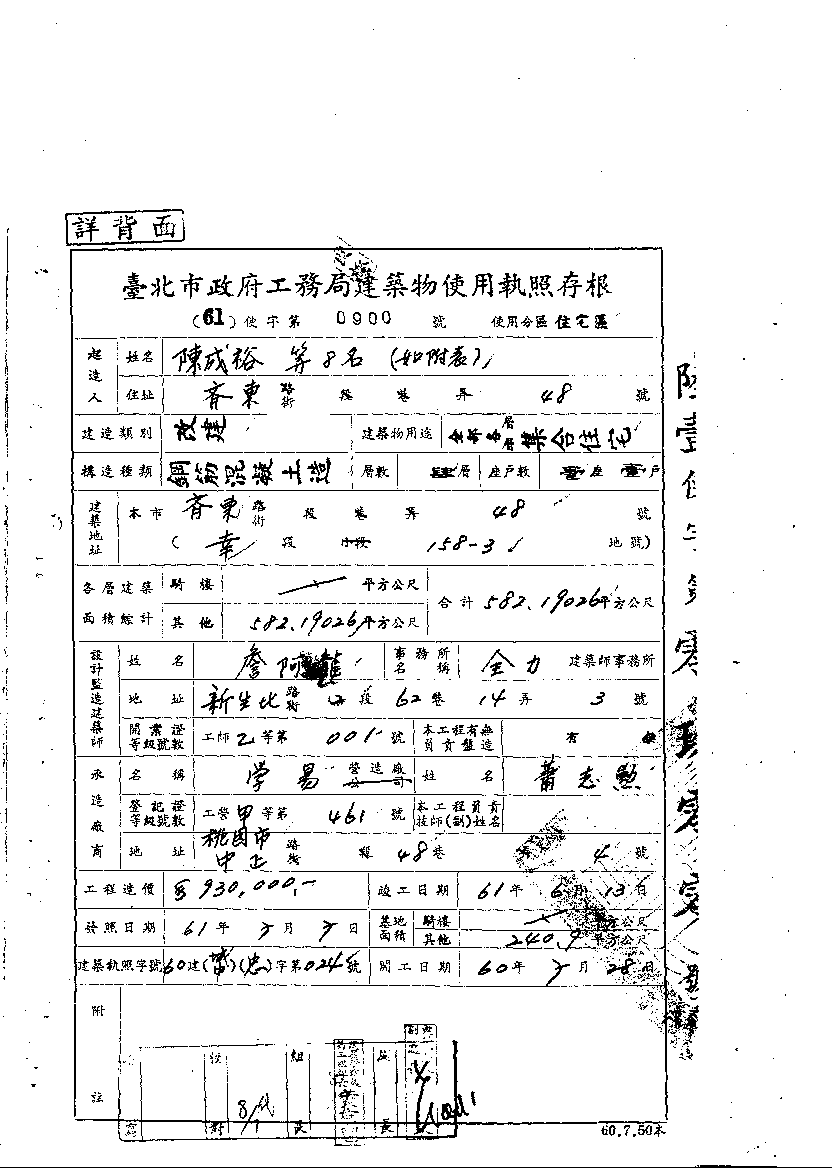 詳背面
臺北市政府工務局建築物使用執照存根
(61)使字第 0900 號 使用分區 住宅區
起造人 姓名 陳成裕 等8名 (如附表)
住址 斉東 路街 段 巷 弄 48 號
建造類別 改建 建築物用途 全部各層 集合住宅
構造種類 鋼筋混凝土造 層數 肆層 座戶數 壹座 壹戶
建築地址 本市 斉東 路街 段 巷 弄 48 號
( 幸 段 小段 158-3 地號)
各層建築面積綜計 騎樓 平方公尺 合計 582.19026 平方公尺
其他 582.19026 平方公尺
設計監造建築師 姓名 詹阿龍 事務所名稱 全力 建築師事務所
地址 新生北 路街 段 62 巷 14 弄 3 號
開業證等級號數 工師 乙 等第 001 號 本工程有無負責監造 有
承造廠商 名稱 学易 營造廠公司 姓名 蕭志勲
登記證等級號數 工營 甲 等第 461 號 本工程負責技師(副)姓名
地址 桃園市中正 路街 段 48 巷 弄 4 號
工程造價 930,000.- 竣工日期 61年 6月 13日
發照日期 61年 月 日 基地面積 騎樓 平方公尺
其他 240.9 平方公尺
建築執照字號 60建( )( )字第024 號 開工日期 60年 月 28日
附註
校對 組長
60.7.50本